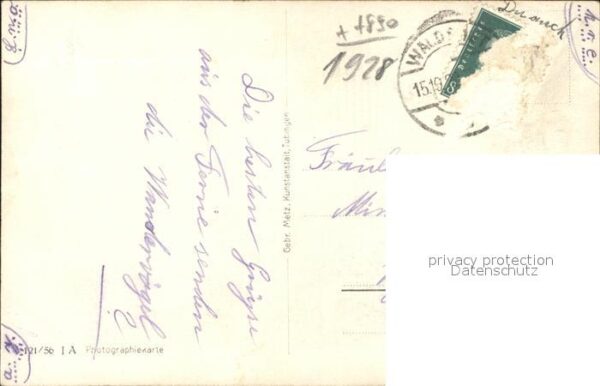 + 1890
1928
Du auch
WALD
15.10.2
Die besten Grüße
aus der Ferne senden
die Wandervögel
Gebr. Metz, Kunstanstalt, Tübingen
Fräul
privacy protection
Datenschutz
121/56 I A Photographiekarte